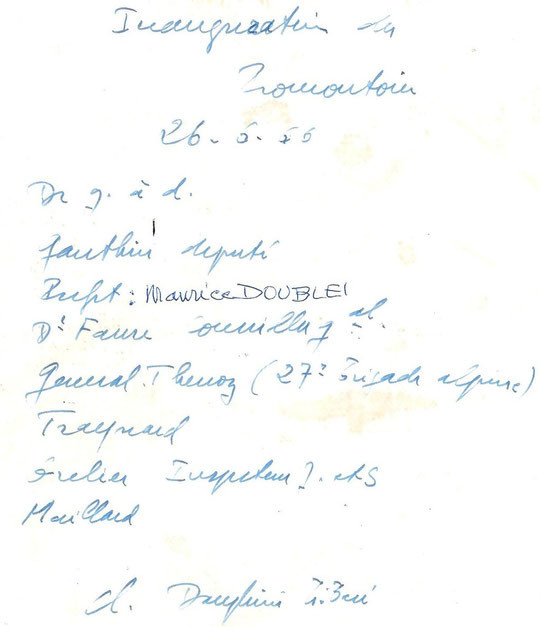 Inauguration du
Promontoire
26. 6. 66
De g. à d.
Gauthier député
Préfet : Maurice DOUBLET
Dr Faure conseiller gal.
General Thenoz (27e Brigade alpine)
Traynard
Inspecteur J. et S
Maillard
cl. Dauphiné